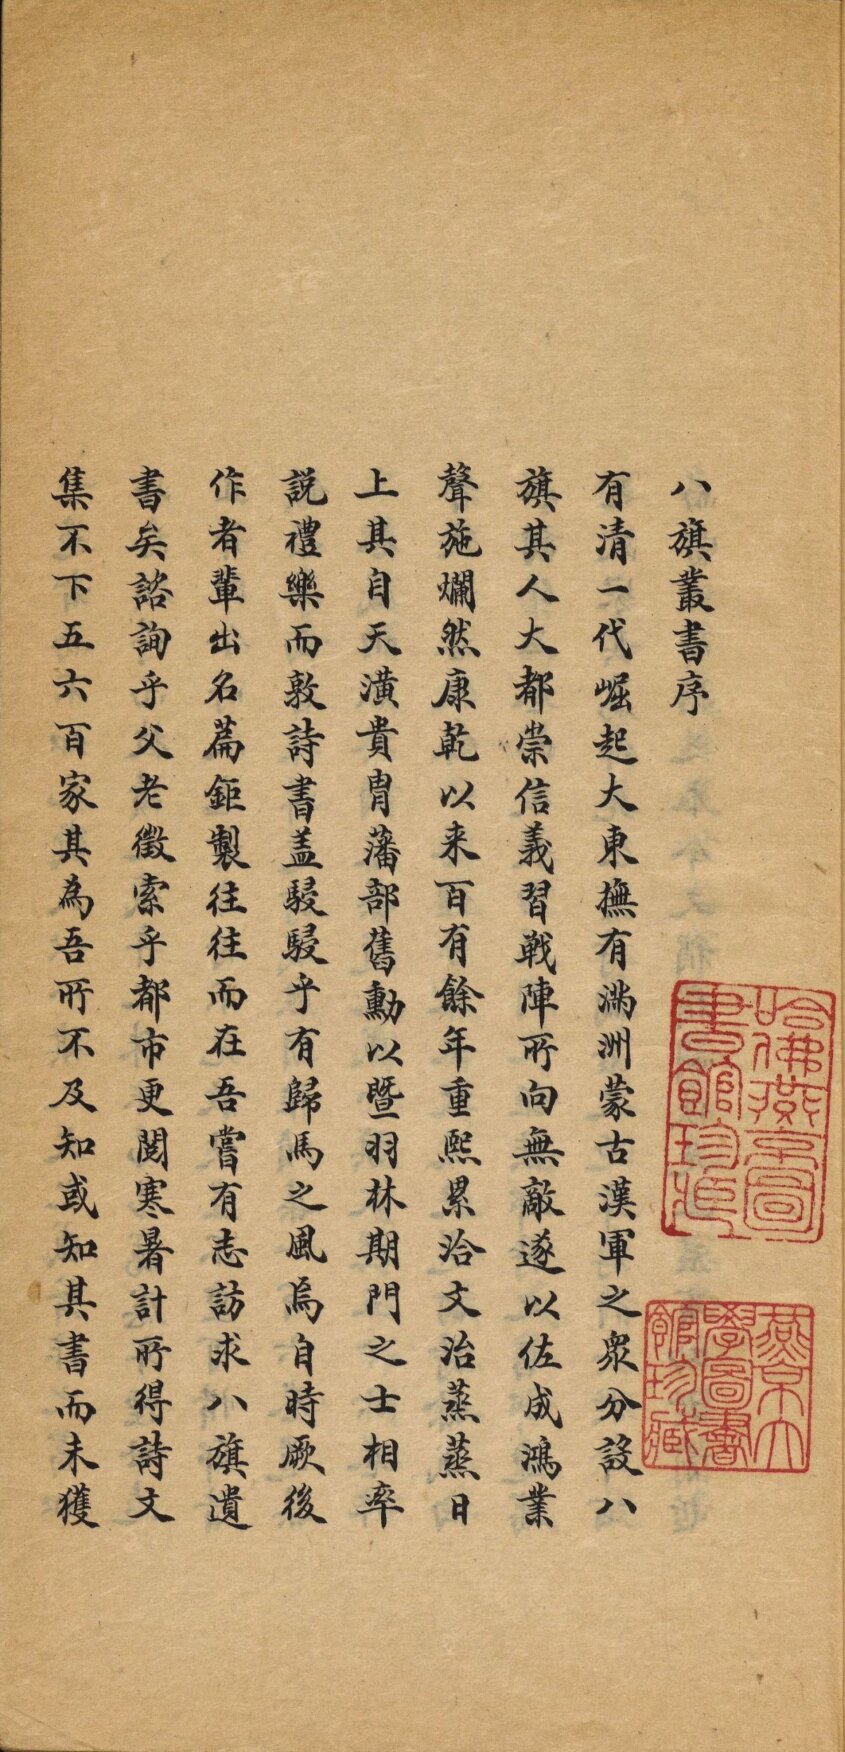 八旗叢書序
有清一代崛起大東撫有滿洲蒙古漢軍之衆分設八
旗其人大都崇信義習戰陣所向無敵遂以佐成鴻業
聲施爛然康乾以来百有餘年重熙累洽文治蒸蒸日
上其自天潢貴胄藩部舊勳以暨羽林期門之士相率
説禮樂而敦詩書盖駸駸乎有歸馬之風焉自時厥後
作者輩出名篇鉅製往往而在吾嘗有志訪求八旗遺
書矣諮詢乎父老徵索乎都市更閱寒暑計所得詩文
集不下五六百家其為吾所不及知或知其書而未獲
哈佛燕京圖
書館珍藏
燕京大
學圖書
館珍藏